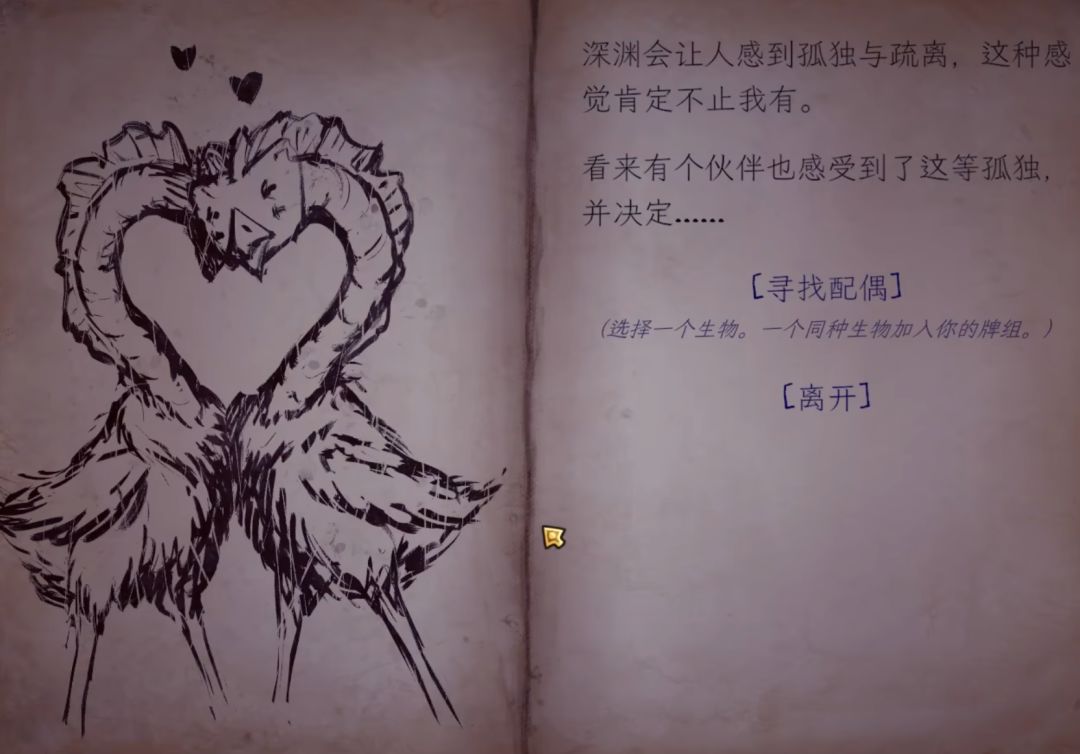 深渊会让人感到孤独与疏离，这种感
觉肯定不止我有。
看来有个伙伴也感受到了这等孤独，
并决定……
[寻找配偶]
（选择一个生物。一个同种生物加入你的牌组。）
[离开]